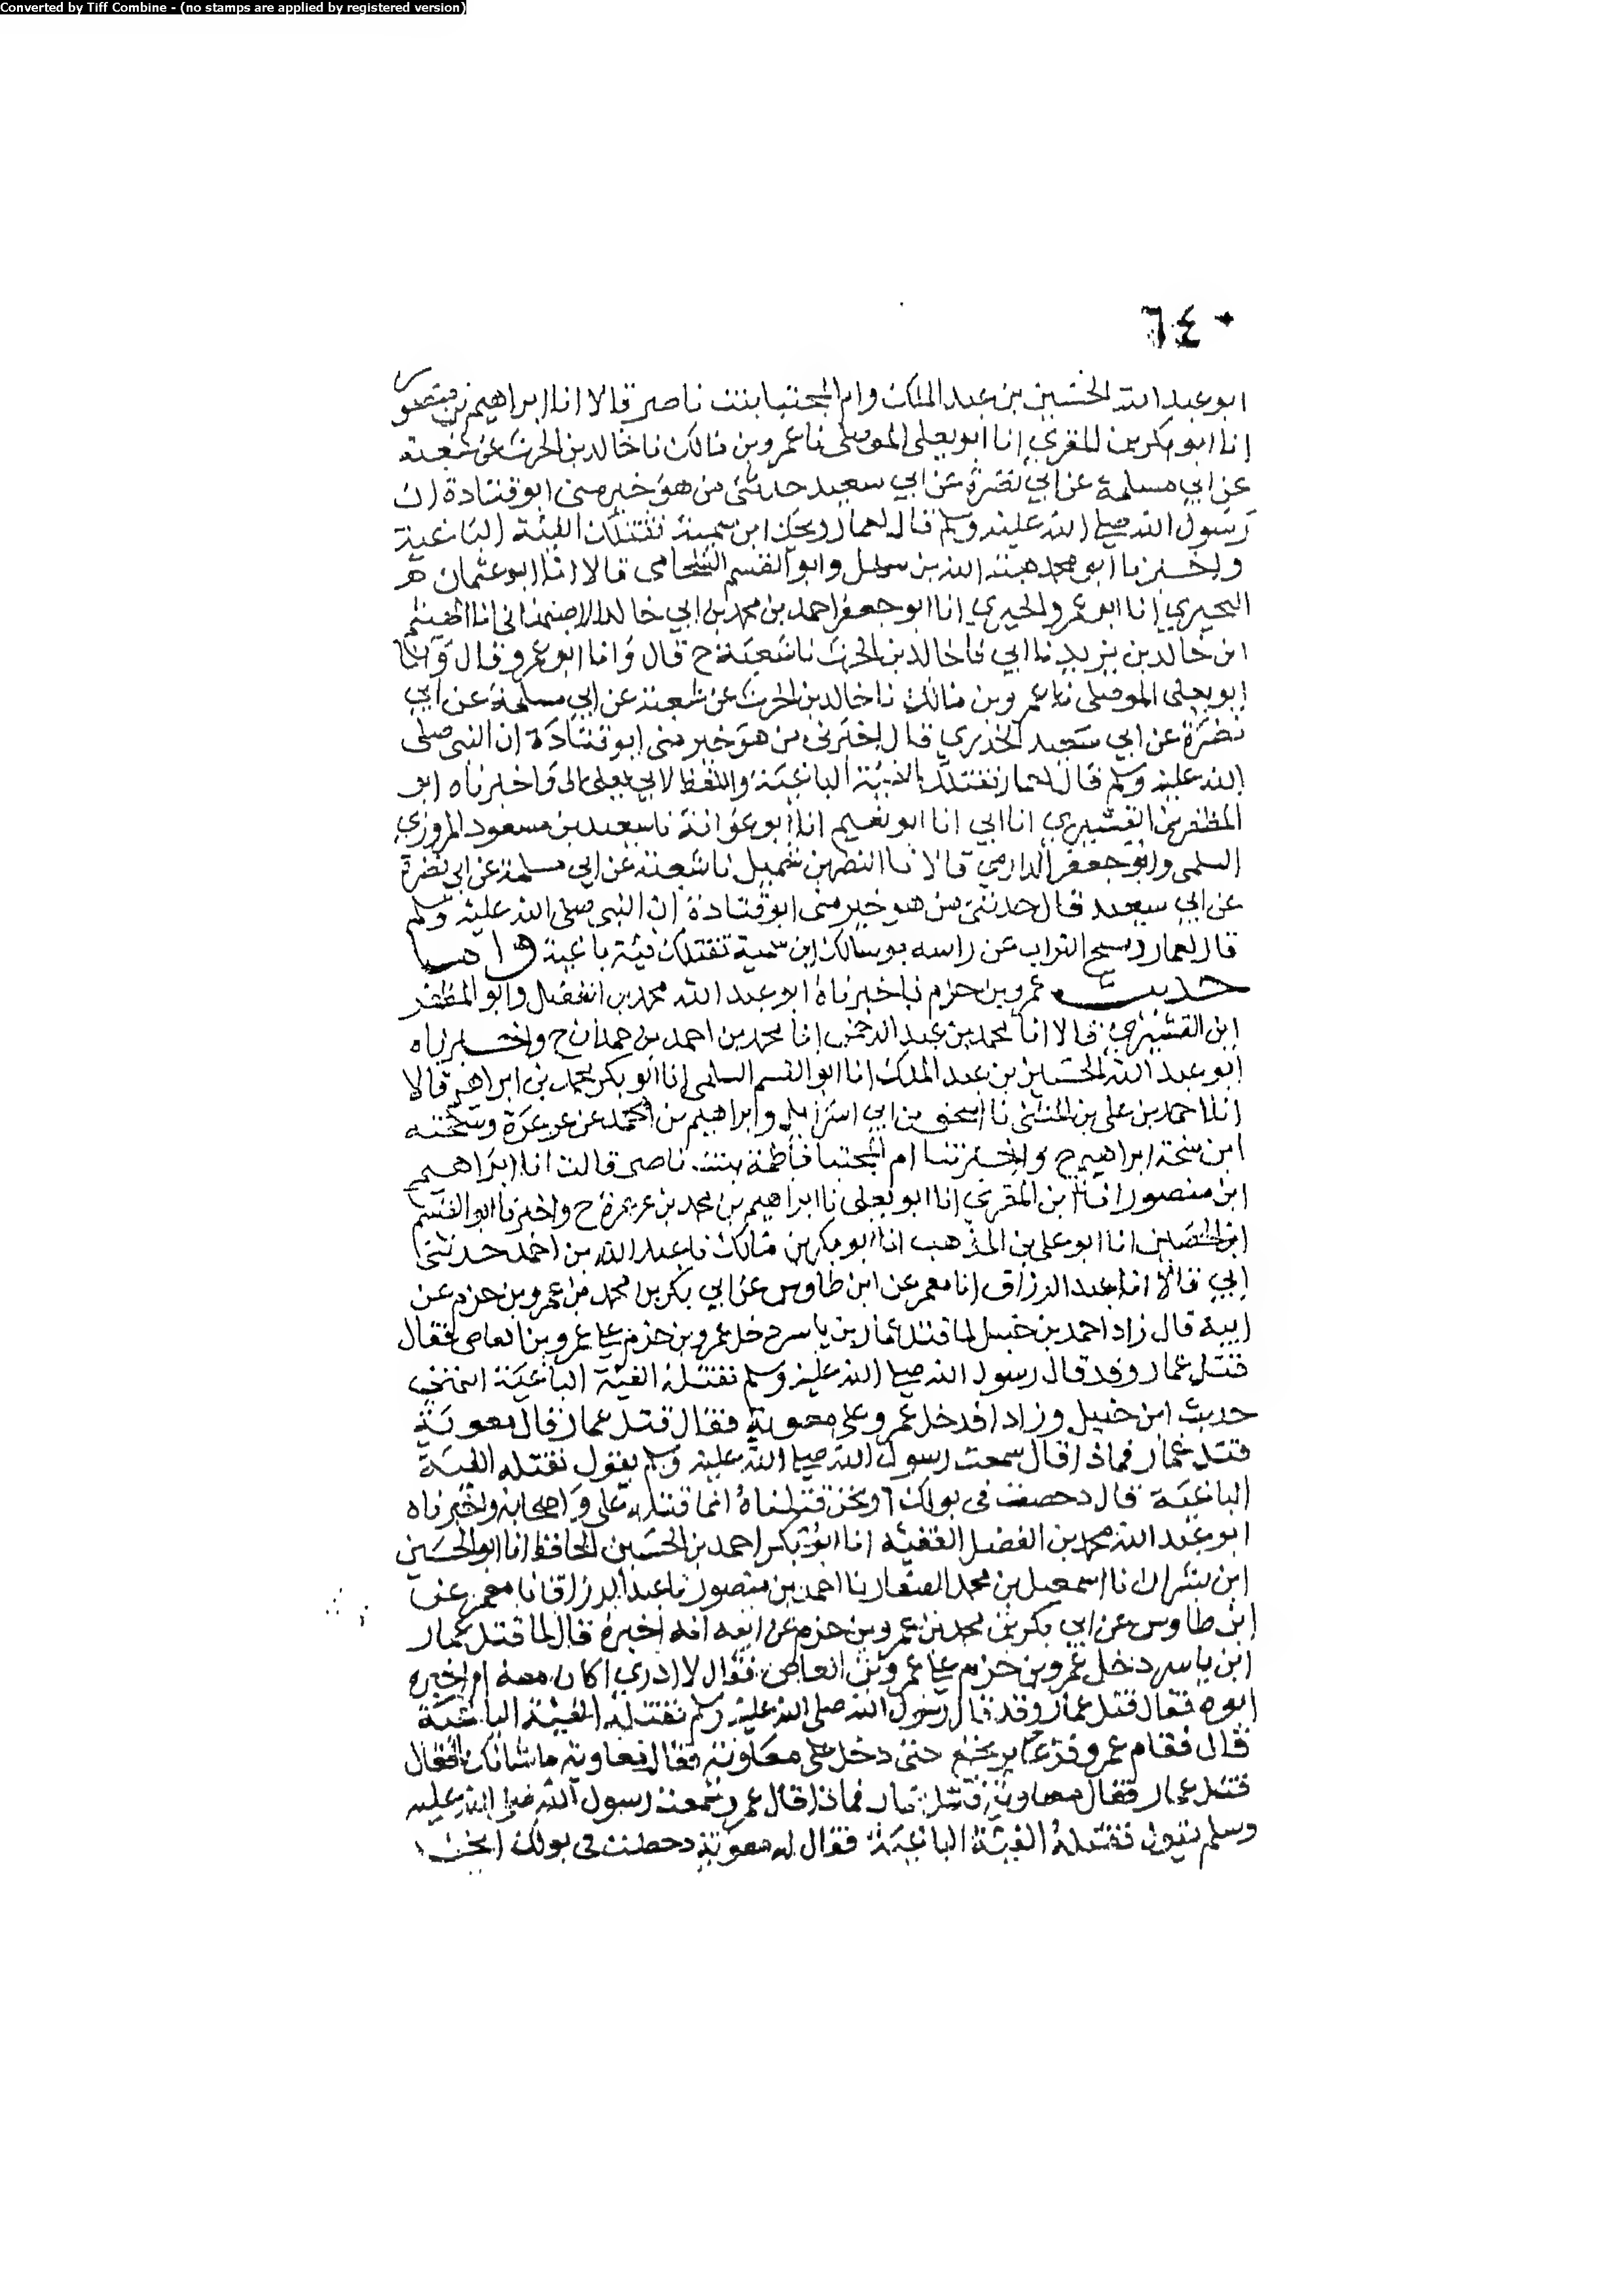 Converted by Tiff Combine - (no stamps are applied by registered version)
٦٤٠
ابو عبد الله الحسين بن عبد الملك وام المجتبا بنت ناصر قالا انا ابراهيم بن منصور
انا ابو بكر بن المقري انا ابو يعلى الموصلى نا عمرو بن مالك نا خالد بن الحرث عن شعبة
عن ابي مسلمة عن ابي نضرة عن ابي سعيد حدثنى من هو خير منى ابو قتادة ان
رسول الله صلى الله عليه وسلم قال لعمار ويحك ابن سمية تقتلك الفئة الباغية
واخبرنا ابو محمد هبة الله بن سهل وابو القسم الشحامى قالا انا ابو عثمان
البحيري انا ابو عمرو الحيري انا ابو جعفر احمد بن محمد بن ابي خالد الاصبهانى انا الهيثم
ابن خالد بن يزيد نا ابي نا خالد بن الحرث نا شعبة ح قال وانا ابو عمرو قال وانا
ابو يعلى الموصلى نا عمرو بن مالك نا خالد بن الحرث عن شعبة عن ابي مسلمة عن ابي
نضرة عن ابي سعيد الخدري قال اخبرنى من هو خير منى ابو قتادة ان النبى صلى
الله عليه وسلم قال لعمار تقتلك الفئة الباغية واللفظ لابي يعلى واخبرناه ابو
المظفر بن القشيري انا ابي انا ابو نعيم انا ابو عوانة نا سعيد بن مسعود المروزي
السلمى وابو جعفر الدارمي قالا نا النضر بن شميل نا شعبة عن ابي مسلمة عن ابي نضرة
عن ابي سعيد قال حدثنى من هو خير منى ابو قتادة ان النبى صلى الله عليه وسلم
قال لعمار ومسح التراب عن راسه بوسا لك ابن سمية تقتلك فئة باغية واما
حديث عمرو بن حزم فاخبرناه ابو عبد الله محمد بن الفضل وابو المظفر
ابن القشيري قالا انا محمد بن عبد الرحمن انا محمد بن احمد بن حمدان ح واخبرناه
ابو عبد الله الحسين بن عبد الملك انا ابو القسم السلمى انا ابو بكر محمد بن ابراهيم قالا
انا احمد بن على بن المثنى نا اسحق بن ابي اسرايل وابراهيم بن محمد بن عرعرة ونسخته
ابن نسخة ابراهيم ح واخبرتنا ام المجتبا فاطمة بنت ناصر قالت انا ابراهيم
ابن منصور انا ابن المقري انا ابو يعلى نا ابراهيم بن محمد بن عرعرة ح واخبرنا ابو القسم
ابن الحصين انا ابو على بن المذهب انا ابو بكر بن مالك نا عبد الله بن احمد حدثنى
ابي قالا انا عبد الرزاق انا معمر عن ابن طاوس عن ابي بكر بن محمد بن عمرو بن حزم عن
ابيه قال زاد احمد بن حنبل لما قتل عمار بن ياسر دخل عمرو بن حزم على عمرو بن العاص فقال
قتل عمار وقد قال رسول الله صلى الله عليه وسلم تقتله الفئة الباغية انتهى
حديث ابن حنبل وزاد فدخل عمرو على معوية فقال قتل عمار قال معوية
قتل عمار فماذا قال سمعت رسول الله صلى الله عليه وسلم يقول تقتله الفئة
الباغية قال دحضت فى بولك اونحن قتلناه انما قتله على واصحابه واخبرناه
ابو عبد الله محمد بن الفضل الفقيه انا ابو بكر احمد بن الحسين الحافظ انا ابو الحسين
ابن بشران انا اسمعيل بن محمد الصفار نا احمد بن منصور نا عبد الرزاق انا معمر عن
ابن طاوس عن ابي بكر بن محمد بن عمرو بن حزم عن ابيه انه اخبره قال لما قتل عمار
ابن ياسر دخل عمرو بن حزم على عمرو بن العاص فقال لا ادري اكان معه ام اخبره
ابوه فقال قتل عمار وقد قال رسول الله صلى الله عليه وسلم تقتله الفئة الباغية
قال فقام عمرو فزعا يرجع حتى دخل على معاوية فقال معاوية ما شانك فقال
قتل عمار فقال معاوية قتل عمار فماذا قال عمرو سمعت رسول الله صلى الله عليه
وسلم يقول تقتله الفئة الباغية فقال له معوية دحضت فى بولك انحن